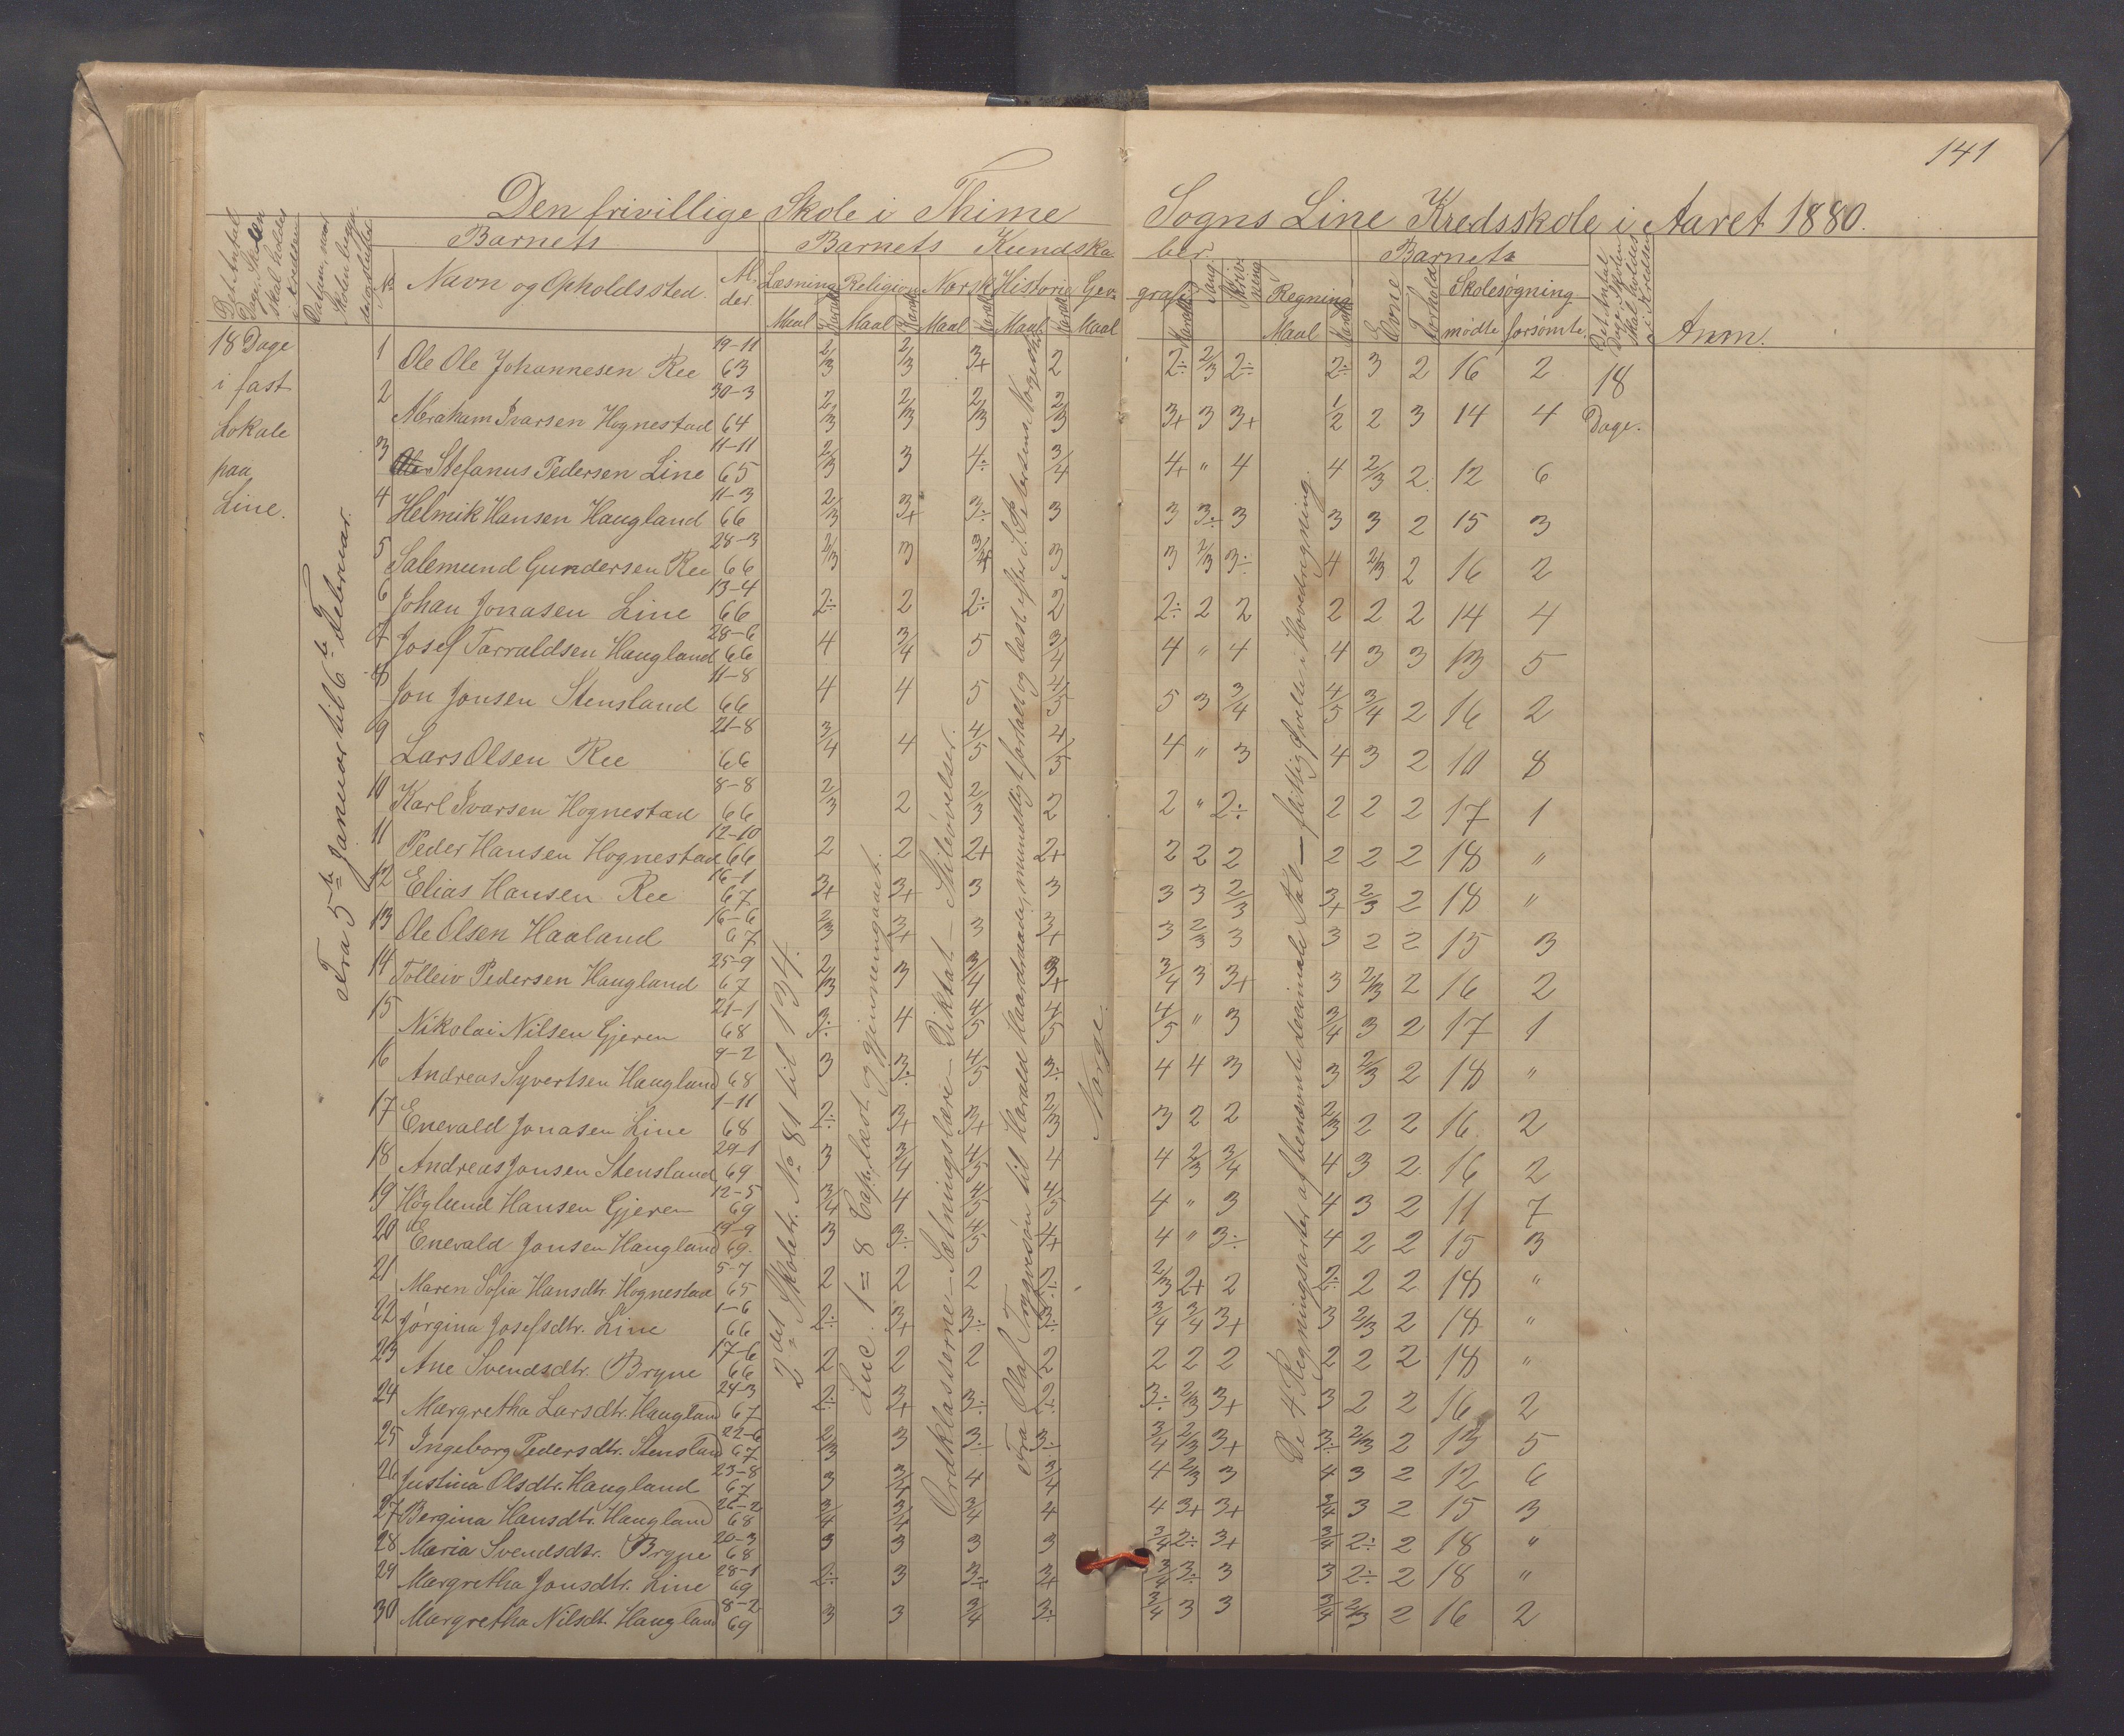 141
Den frivillige Skole i Thime Sogns Line Kredsskole i Aaret 1880.
Det Antal Dage Skolen skal holdes i Kredsen
Datum, naar Skolen begyn
Barnets Barnets Kundska ber. Barnets Det Antal Dage Skolen skal holdes i Kredsen
No. Navn og Opholdssted. Al der. Læsning Religion Norsk Historie Geo grafi Sang Skriv ning Regning Evne Forhold Skolesøgning Anm.
Maal Karakt Maal Karakt Maal Karakt Maal Karakt Maal Karakt Maal Karakt mødte forsømte.
18 Dage i fast Lokale paa Line.
Fra 5te Januar til 6te Februar.
1 Ole Ole Johannesen Ree 19-11 63 2/3 2/3 3+ 2 2÷ 2/3 2÷ 2÷ 3 2 16 2 18
2 Abraham Ivarsen Hognestad 30-3 64 2/3 2/3 2/3 2/3 3+ 3 3+ 1/2 2 3 14 4 Dage.
3 Stefanus Pedersen Line 11-11 65 2/3 3 4÷ 3/4 4+ " 4 4 2/3 2 12 6
4 Helmik Hansen Haugland 11-3 66 2/3 3+ 3÷ 3 3 3÷ 3 3 3 2 15 3
5 Salemund Gundersen Ree 28-3 66 2/3 3 3/4 3 3 2/3 3÷ 4 2/3 2 16 2
6 Johan Jonasen Line 13-4 66 2÷ 2 2÷ 2 2÷ 2 2 2 2 2 14 4
7 Josef Tarraldsen Haugland 28-6 66 4 3/4 5 3/4 4 " 4 4 3 3 13 5
8 Jon Jonsen Stensland 11-8 66 4 4 5 4/5 5 3 3/4 4/5 3/4 2 16 2
9 Lars Olsen Ree 21-8 66 3/4 4 4/5 4/5 4 " 3 4 3 2 10 8
10 Karl Ivarsen Hognestad 8-8 66 2/3 2 2/3 2 2 " 2÷ 2 2 2 17 1
11 Peder Hansen Hognestad 12-10 66 2 2 2+ 2+ 2 2 2 2 2 2 18 "
12 Elias Hansen Ree 16-1 67 3+ 3+ 3 3 3 3 2/3 3+ 2/3 2 18 "
13 Ole Olsen Haaland 16-6 67 2/3 3+ 3 3+ 3 2/3 3 3 2 2 15 3
14 Tolleiv Pedersen Haugland 25-9 67 2/3 3 3/4 3+ 3/4 3 3+ 3 2/3 2 16 2
15 Nikolai Nilsen Gjeren 21-1 68 3÷ 4 4/5 4/5 4/5 " 3 3/4 3 2 17 1
16 Andreas Syvertsen Haugland 9-2 68 3 3÷ 4/5 3÷ 4 4 3 3 2/3 2 18 "
17 Enevald Jonasen Line 1-11 68 2÷ 3+ 3+ 2/3 3 2 2 2/3 2 2 16 2
18 Andreas Jonsen Stensland 29-1 69 3 3/4 4/5 4 4 2/3 3/4 4 3 2 16 2
19 Høglund Hansen Gjeren 12-5 69 3/4 4 4/5 4/5 4 " 3 4 3 2 11 7
20 Enevald Jonsen Haugland 19-9 69. 3 3÷ 4/5 4+ 4 " 3÷ 4 2 2 15 3
21 Maren Sofia Hansdtr. Hognestad 5-7 65 2 2 2 2÷ 2/3 2+ 2 2÷ 2 2 18 "
22 Jørgina Josefsdtr. Line 1-6 66 2÷ 3+ 3÷ 3÷ 3/4 3/4 3+ 3 2/3 2 18 "
23 Ane Svendsdtr. Bryne 17-6 66 2 2 2 2 2 2 2 2 2 2 18 "
24 Margretha Larsdtr. Haugland 24-3 67 2÷ 3+ 3÷ 2÷ 3÷ 2/3 3+ 3 2 2 16 2
25 Ingeborg Pedersdtr. Stensland 22-6 67 2/3 3 3÷ 3÷ 3/4 2/3 3+ 3÷ 2/3 2 13 5
26 Justina Olsdtr. Haugland 23-8 67 3 3/4 4 3/4 4 2/3 3 4 3 2 12 6
27 Bergina Hansdtr. Haugland 26-2 68 3/4 3/4 3/4 4 4 3+ 3+ 3/4 3 2 15 3
28 Maria Svendsdtr. Bryne 20-3 68 3 3 3 3 3/4 2÷ 3+ 3/4 2÷ 2 18 "
29 Margretha Jonsdtr. Line 28-1 69 2÷ 3 3÷ 3+ 3/4 3÷ 3 3 2÷ 2 18 "
30 Margretha Nilsdt. Haugland 8-2 69 3 3 3/4 3÷ 3/4 3 3 3/4 2/3 2 16 2
2det Skoletr. No 81 til 134.
Luc. 1=8 Cap. læst & gjennemgaaet.
Ordklasserne – Sætningslære – Diktat – Stiløvelser.
Fra Olaf Trygvesøn til Harald Haardraade, mundtligt fortalt og læst efter S. Petersens Norgeshist.
Norge.
De 4 Regningsarter af benævnte decimale Tal – flittig øvelse i Hovedregning.